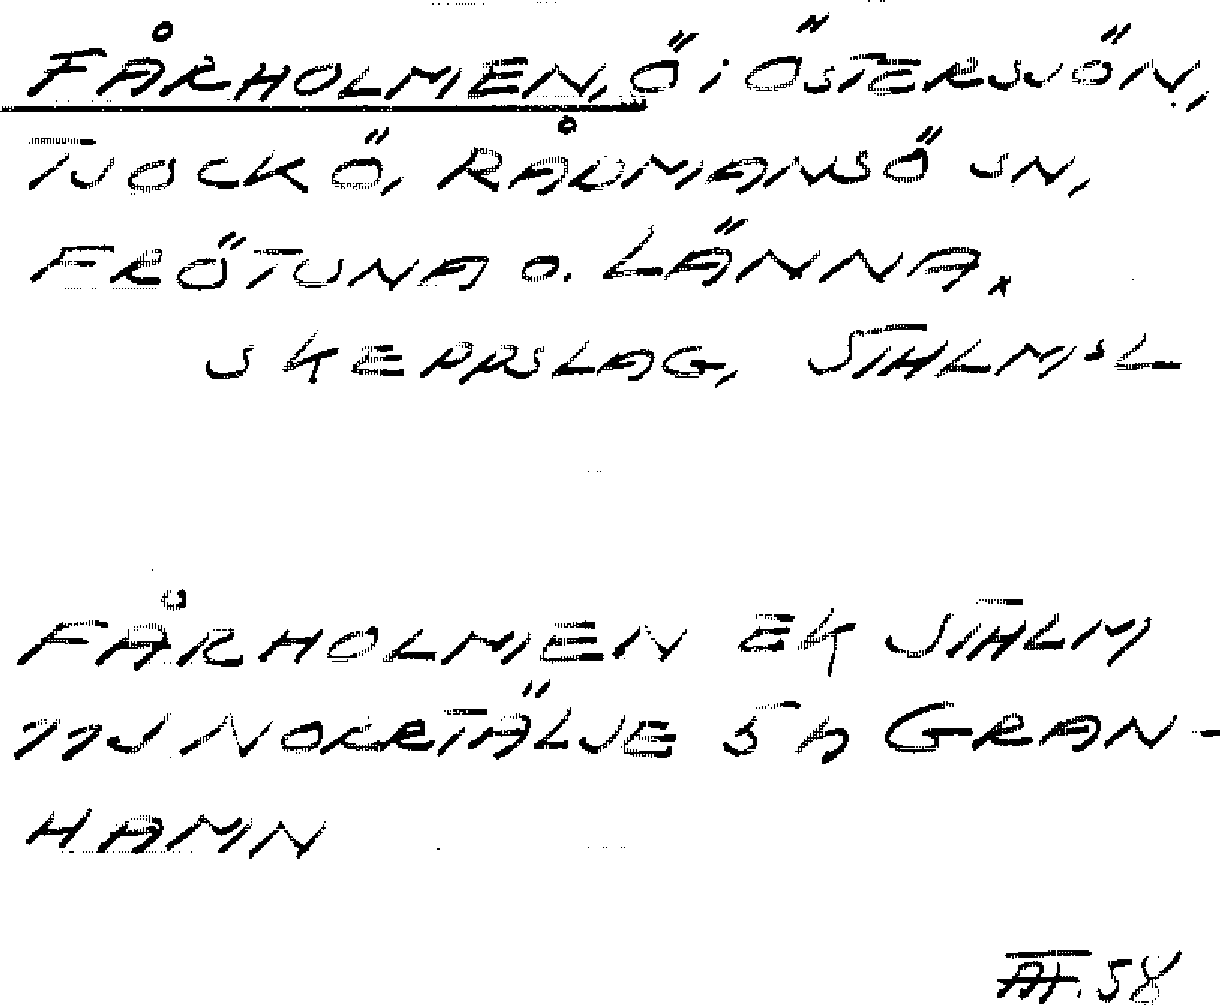 FÅRHOLMEN, Ö i ÖSTERSJÖN,
TJOCKÖ, RÅDMANSÖ SN,
FRÖTUNA O. LÄNNA
SKEPPSLAG, STHLMSL
FÅRHOLMEN EK STHLM
NORRTÄLJE 5 h GRAN-
HAMN
58